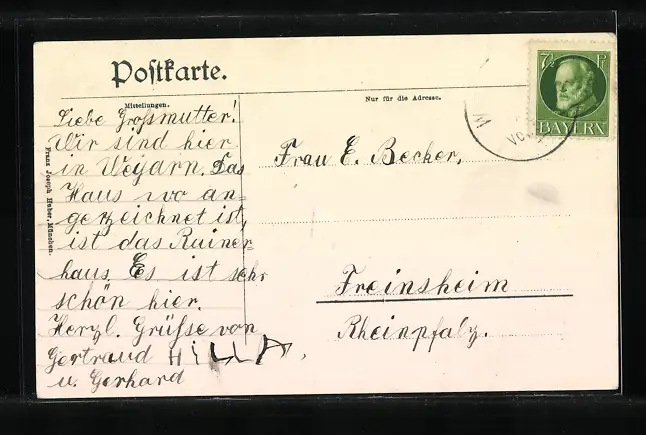 Postkarte.
Mitteilungen.
Nur für die Adresse.
Liebe Großmutter!
Wir sind hier
in Weyarn. Das
Haus wo an-
gezeichnet ist,
ist das Rainer-
haus. Es ist sehr
schön hier.
Herzl. Grüße von
Gertraud HiLLA,
u. Gerhard
Franz Joseph Huber, München.
Frau E. Becker,
Freinsheim
Rheinpfalz.
7½ Pf
BAYERN